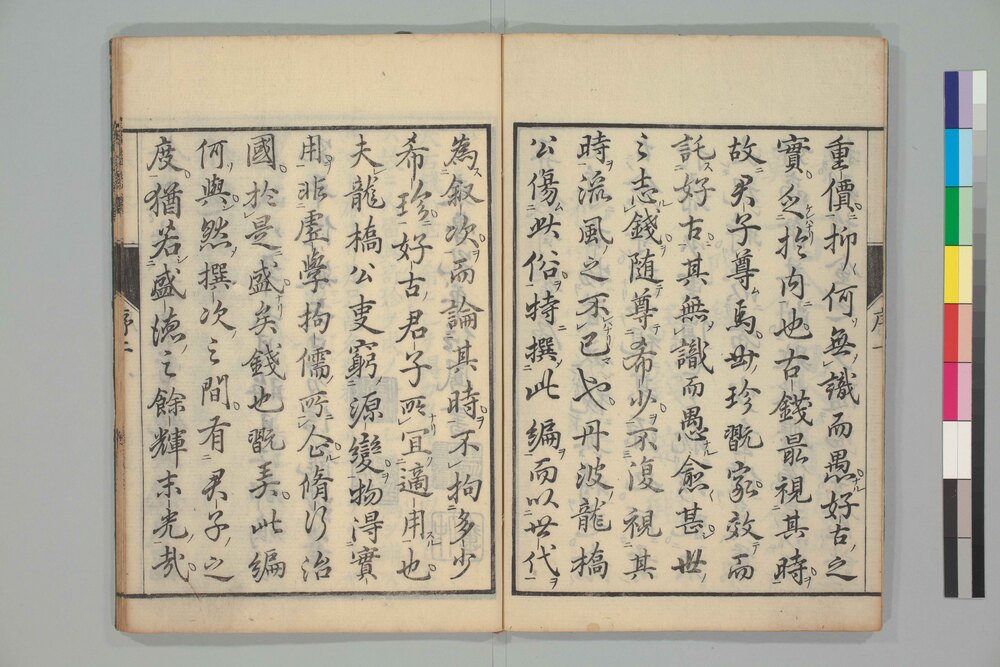 重價抑何無識而愚好古之
實乏於内也古錢最視其時
故君子尊焉毋珍翫家效而
託好古其無識而愚愈甚世
之志錢随尊希少不復視其
時流風之不已也丹波龍橋
公傷此俗特撰此編而以世代
為叙次而論其時不拘多少
希珍好古君子所宜適用也
夫龍橋公吏窮源變物得實
用非虚學拘儒所企脩行治
國於是盛矣錢也翫弄此編
何與然撰次之間有君子之
度猶若盛德之餘輝末光哉
序一
序二